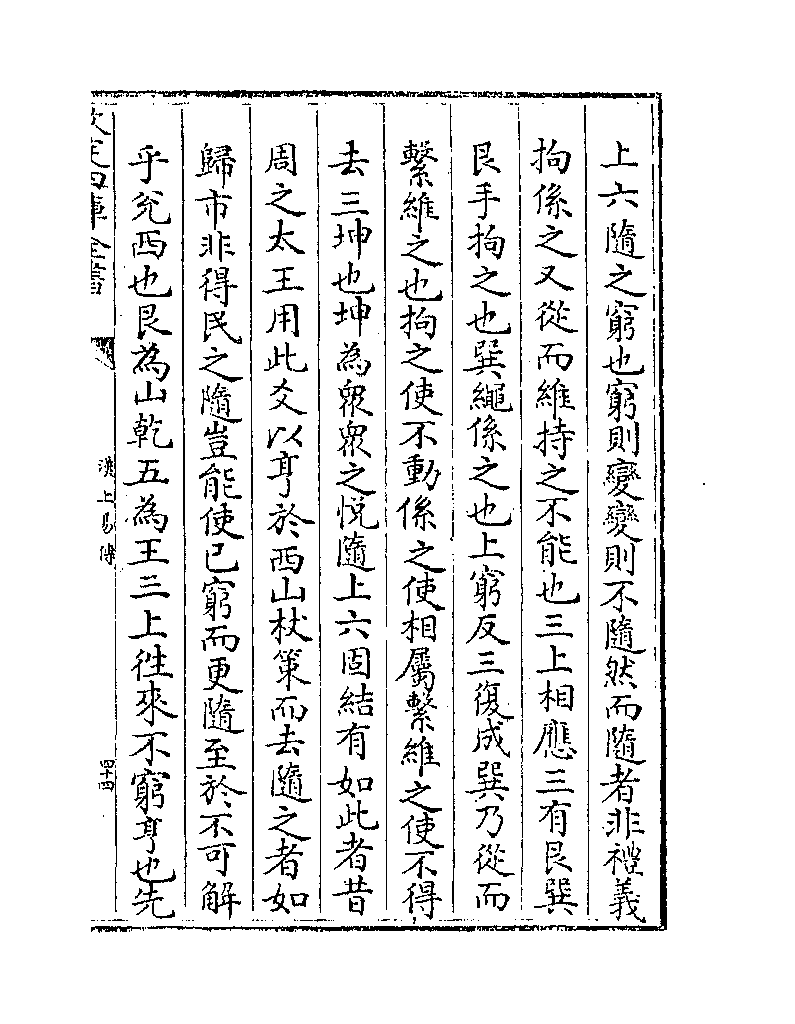 上六隨之窮也窮則變變則不隨然而隨者非禮義
拘係之又從而維持之不能也三上相應三有艮巽
艮手拘之也巽繩係之也上窮反三復成巽乃從而
繫維之也拘之使不動係之使相屬繫維之使不得
去三坤也坤為衆衆之恱隨上六固結有如此者昔
周之太王用此爻以亨於西山杖策而去隨之者如
歸市非得民之隨豈能使已窮而更隨至於不可解
乎兊西也艮為山乾五為王三上徃來不窮亨也先
欽定四庫全書
漢上易傳
四十四